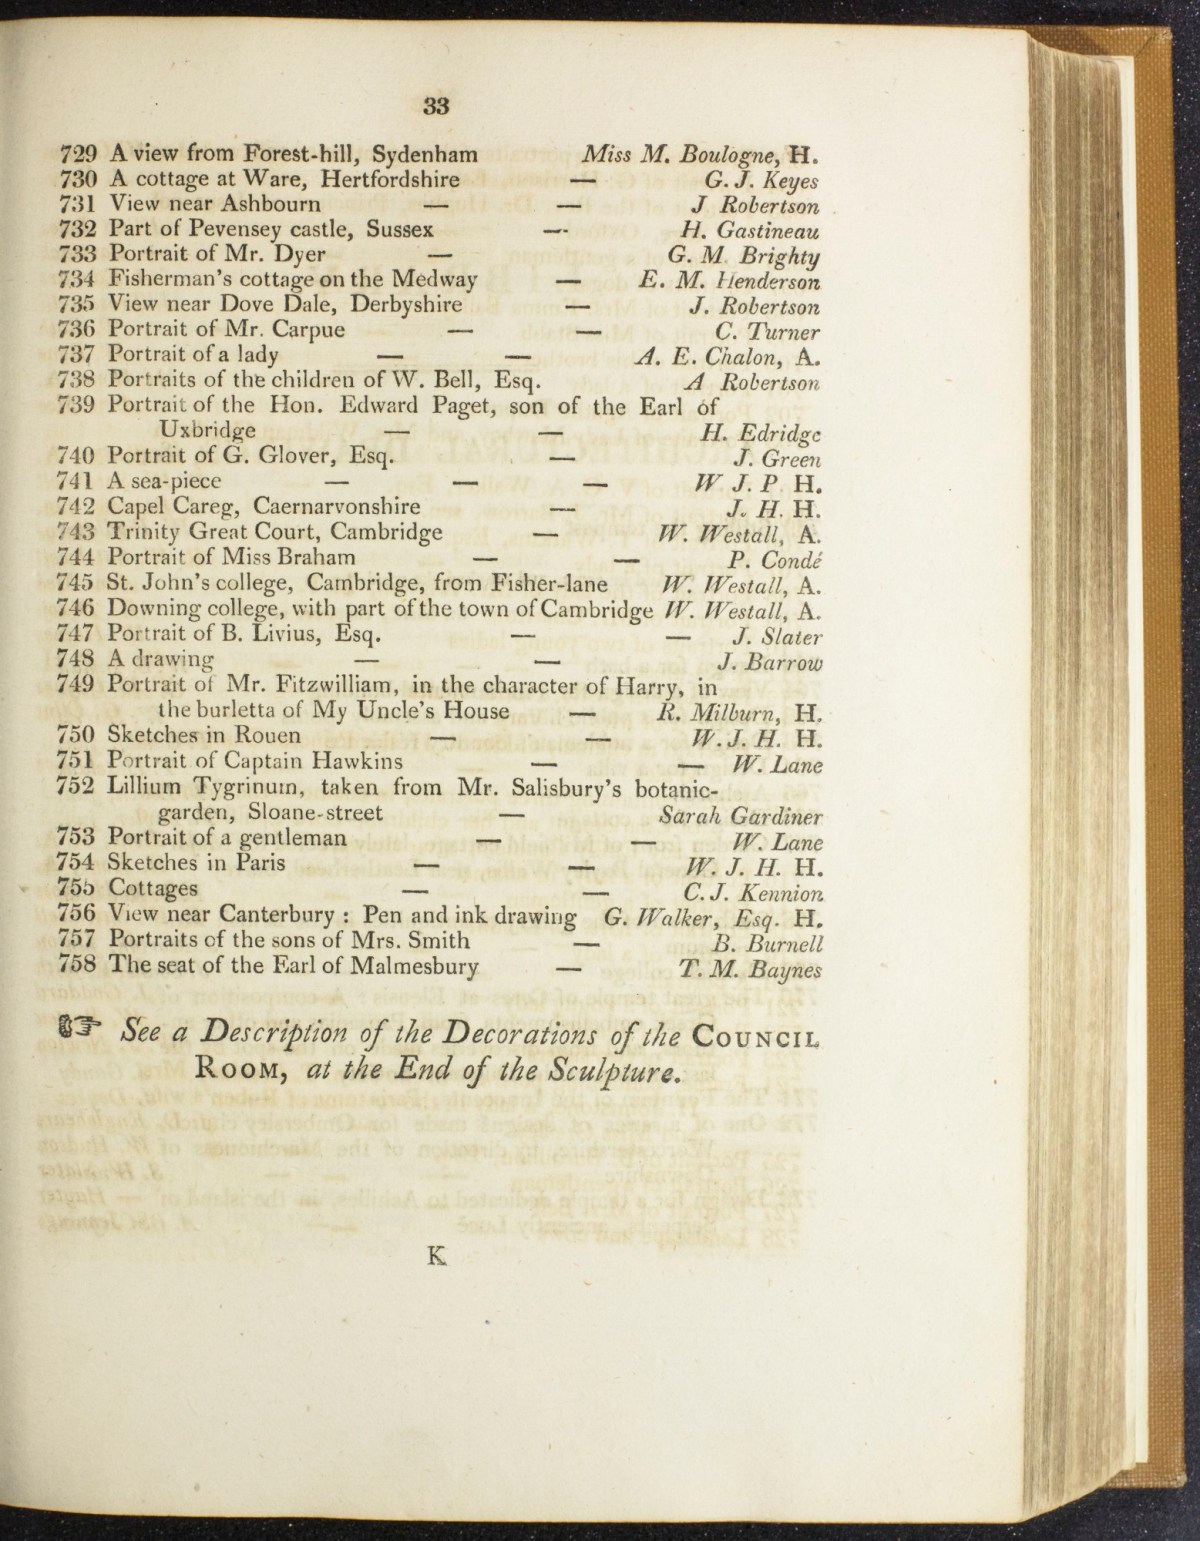 33
729 A view from Forest-hill, Sydenham Miss M. Boulogne, H.
730 A cottage at Ware, Hertfordshire — G. J. Keyes
731 View near Ashbourn — — J Robertson
732 Part of Pevensey castle, Sussex — H. Gastineau
733 Portrait of Mr. Dyer — G. M. Brighty
734 Fisherman's cottage on the Medway — E. M. Henderson
735 View near Dove Dale, Derbyshire — J. Robertson
736 Portrait of Mr. Carpue — — C. Turner
737 Portrait of a lady — — A. E. Chalon, A.
738 Portraits of the children of W. Bell, Esq. A Robertson
739 Portrait of the Hon. Edward Paget, son of the Earl of
Uxbridge — — H. Edridge
740 Portrait of G. Glover, Esq. — J. Green
741 A sea-piece — — — W J. P H.
742 Capel Careg, Caernarvonshire — J. H. H.
743 Trinity Great Court, Cambridge — W. Westall, A.
744 Portrait of Miss Braham — — P. Condé
745 St. John's college, Cambridge, from Fisher-lane W. Westall, A.
746 Downing college, with part of the town of Cambridge W. Westall, A.
747 Portrait of B. Livius, Esq. — — J. Slater
748 A drawing — — J. Barrow
749 Portrait of Mr. Fitzwilliam, in the character of Harry, in
the burletta of My Uncle's House — R. Milburn, H.
750 Sketches in Rouen — — W. J. H. H.
751 Portrait of Captain Hawkins — — W. Lane
752 Lillium Tygrinum, taken from Mr. Salisbury's botanic-
garden, Sloane-street — Sarah Gardiner
753 Portrait of a gentleman — — W. Lane
754 Sketches in Paris — — W. J. H. H.
755 Cottages — — C. J. Kennion
756 View near Canterbury : Pen and ink drawing G. Walker, Esq. H.
757 Portraits of the sons of Mrs. Smith — B. Burnell
758 The seat of the Earl of Malmesbury — T. M. Baynes
☞ See a Description of the Decorations of the COUNCIL
ROOM, at the End of the Sculpture.
K